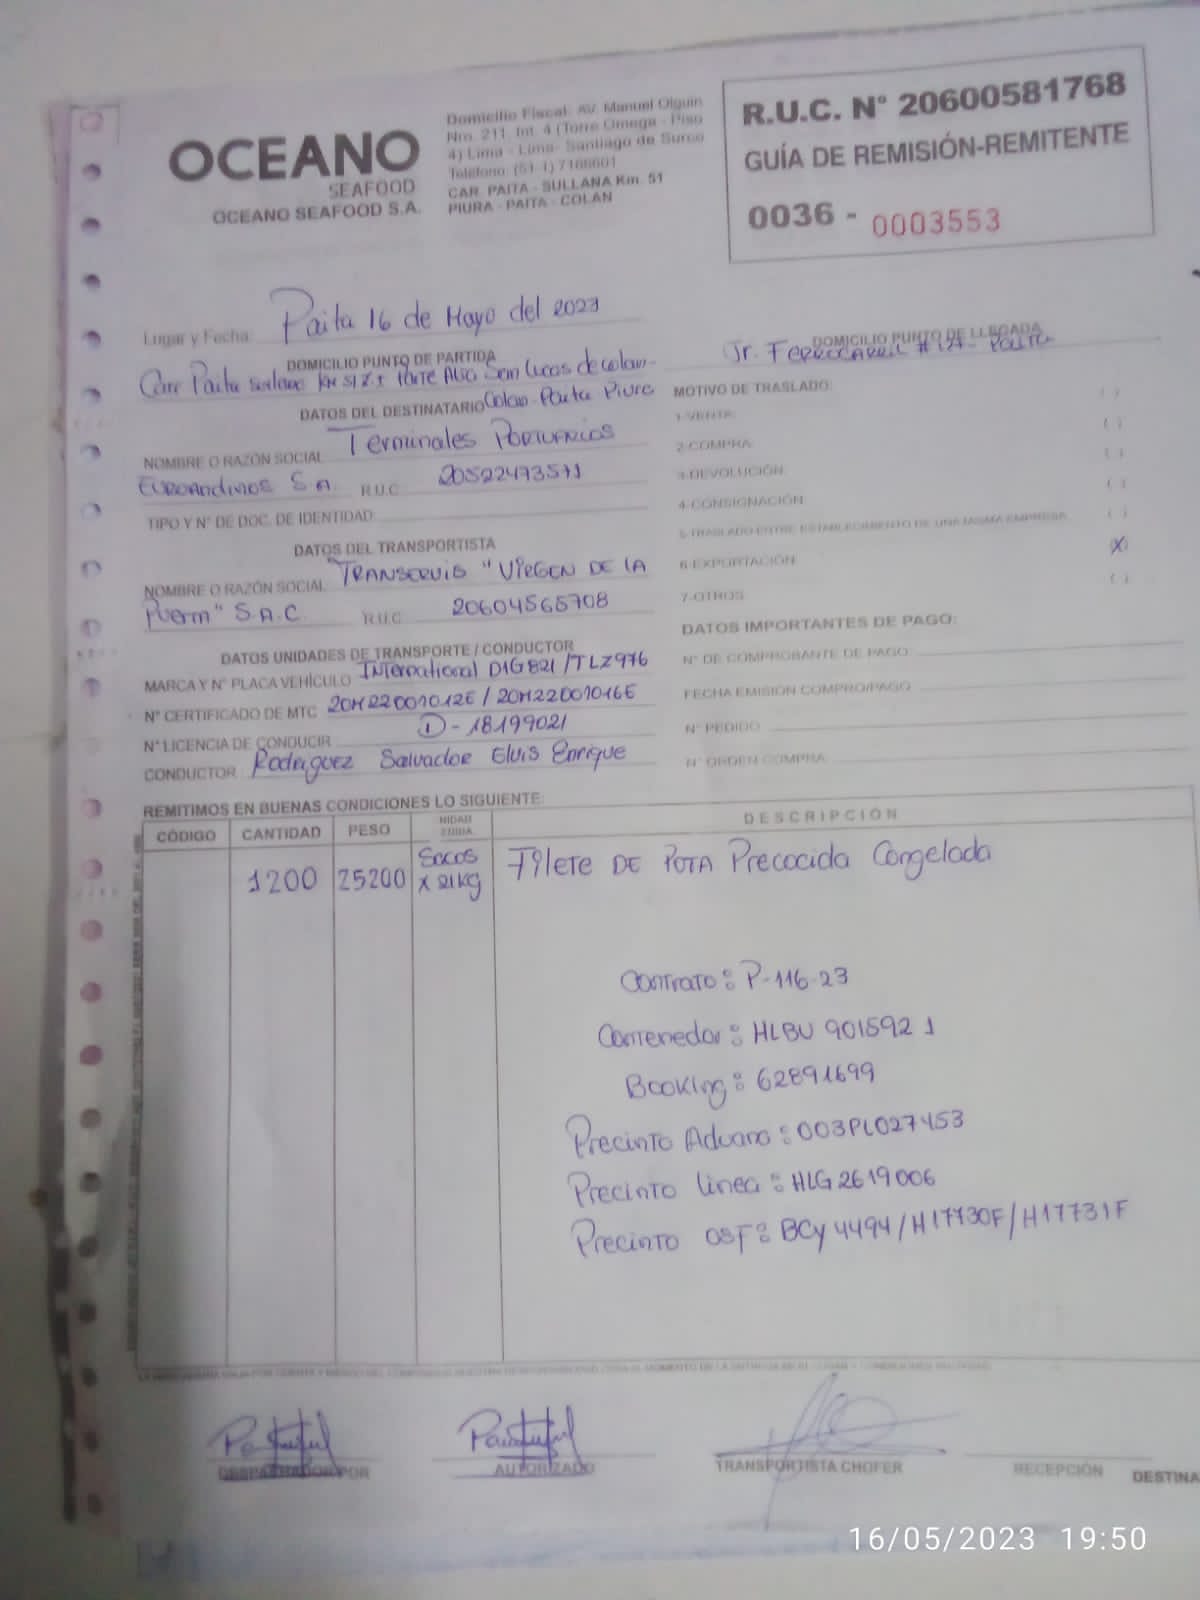 OCEANO
SEAFOOD
OCEANO SEAFOOD S.A.
Domicilio Fiscal: AV. Manuel Olguin
Nro. 211, Int. 4 (Torre Omega - Piso
4) Lima - Lima- Santiago de Surco
Teléfono: (51-1) 7166601
CAR. PAITA - SULLANA Km. 51
PIURA - PAITA - COLAN
R.U.C. N° 20600581768
GUÍA DE REMISIÓN-REMITENTE
0036 - 0003553
Lugar y Fecha: Paita 16 de Mayo del 2023
DOMICILIO PUNTO DE PARTIDA
Carr Paita Sullana KM 51 Parte Alta San Lucas de Colan-
Colan-Paita Piura
DOMICILIO PUNTO DE LLEGADA
Jr. Ferrocarril #127- Paita
DATOS DEL DESTINATARIO
NOMBRE O RAZÓN SOCIAL Terminales Portuarios
Euroandinos S.A. R.U.C. 20522473571
TIPO Y N° DE DOC. DE IDENTIDAD
DATOS DEL TRANSPORTISTA
NOMBRE O RAZÓN SOCIAL TRANSERVIS "VIRGEN DE LA
Puerta" S.A.C. R.U.C. 20604565708
DATOS UNIDADES DE TRANSPORTE / CONDUCTOR
MARCA Y N° PLACA VEHÍCULO International D1G821/TLZ976
N° CERTIFICADO DE MTC 20M22001012E / 20M22001016E
N° LICENCIA DE CONDUCIR D-18199021
CONDUCTOR Rodriguez Salvador Elvis Enrique
MOTIVO DE TRASLADO:
1-VENTA ( )
2-COMPRA ( )
3-DEVOLUCIÓN ( )
4-CONSIGNACIÓN ( )
5-TRASLADO ENTRE ESTABLECIMIENTO DE UNA MISMA EMPRESA ( )
6-EXPORTACIÓN (X)
7-OTROS ( )
DATOS IMPORTANTES DE PAGO:
N° DE COMPROBANTE DE PAGO
FECHA EMISIÓN COMPRO/PAGO
N° PEDIDO
N° ORDEN COMPRA
REMITIMOS EN BUENAS CONDICIONES LO SIGUIENTE:
CÓDIGO CANTIDAD PESO DESCRIPCIÓN
1200 25200 Sacos x 21kg Filete DE POTA Precocida Congelada
Contrato: P-116-23
Contenedor: HLBU 901592 1
Booking: 62891699
Precinto Aduana: 003PL027453
Precinto Linea: HLG2619006
Precinto OSF: BCy 4494/H17730F/H17731F
DESPACHADO POR
AUTORIZADO
TRANSPORTISTA CHOFER
RECEPCIÓN
DESTINA
16/05/2023 19:50